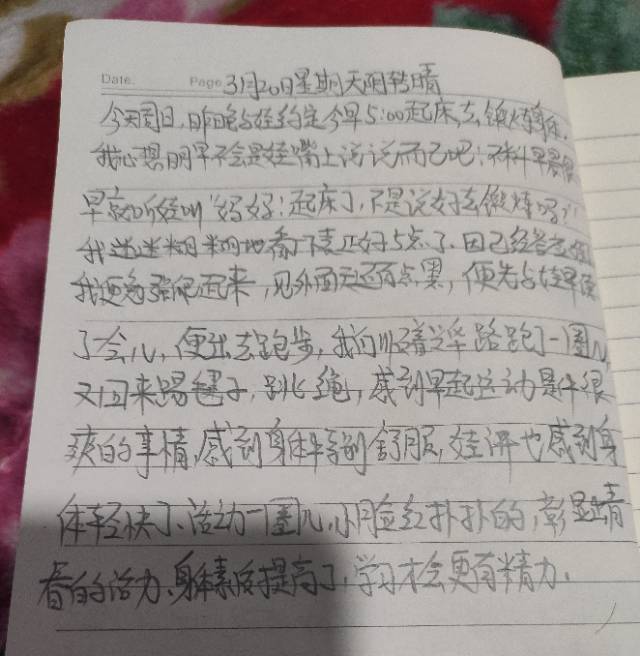 Date.
Page 3月20日星期天阴转晴
今天周日,昨晚与娃约定今早5:00起床,去锻炼身体,
我心想明早不会是娃嘴上说说而已吧!不料早晨很
早就听娃叫"妈妈!起床了,不是说好去锻炼吗?"
我迷迷糊糊地看了表正好5点了.因已经答应娃
我便勉强爬起来,见外面天还有点黑,便先与娃早读
了会儿,便出去跑步,我们顺着 路跑了一圈儿,
又回来踢毽子,跳绳,感到早起运动是件很
爽的事情,感到身体特别舒服,娃讲也感到身
体轻快了、活动一圈儿,小脸红扑扑的,彰显 青
春的活力.身体素质提高了,学习才会更有精力.